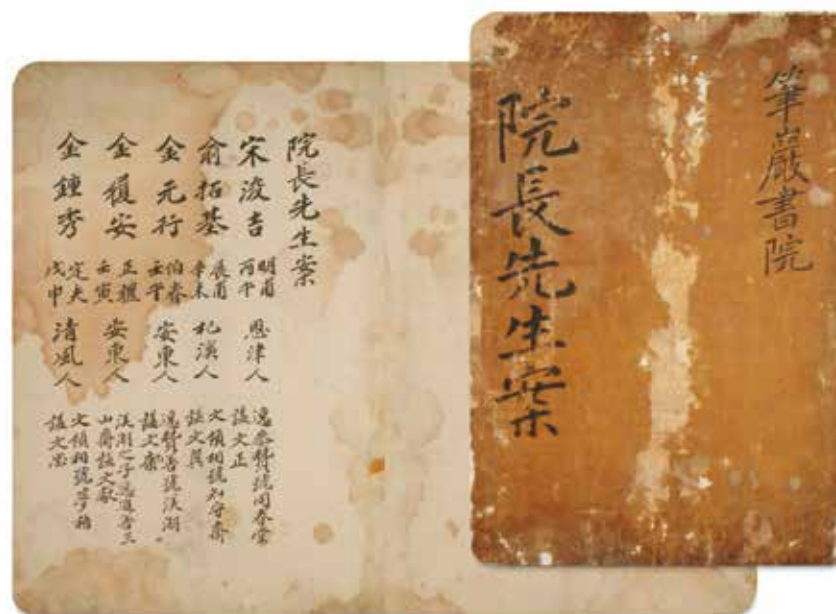 筆巖書院
院長先生案
院長先生案
宋浚吉 明甫 丙午 恩津人 逸參贊號同春堂 諡文正
俞拓基 展甫 辛未 杞溪人 文領相號知守齋 諡文翼
金元行 伯春 壬午 安東人 逸贊善號渼湖 諡文
金履安 正禮 壬寅 安東人 渼湖之子逸進善三山齋諡文敬
金鍾秀 定夫 戊申 清風人 文領相號夢梧 諡文忠